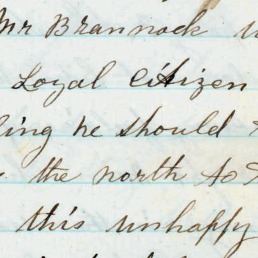 Mr Brannock
Loyal Citizen
ling he should
the north to
this unhappy